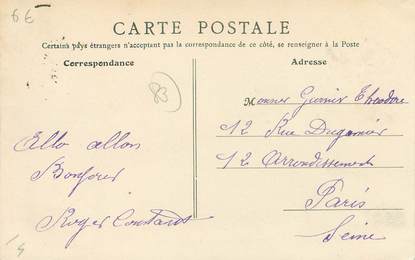 6€
CARTE POSTALE
Certains pays étrangers n'acceptant pas la correspondance de ce côté, se renseigner à la Poste
Correspondance
Adresse
83
Allo allons
Bonjour
Roger Constant
Monsieur Théodore
12 Rue Dugommier
12 Arrondissement
Paris
Seine